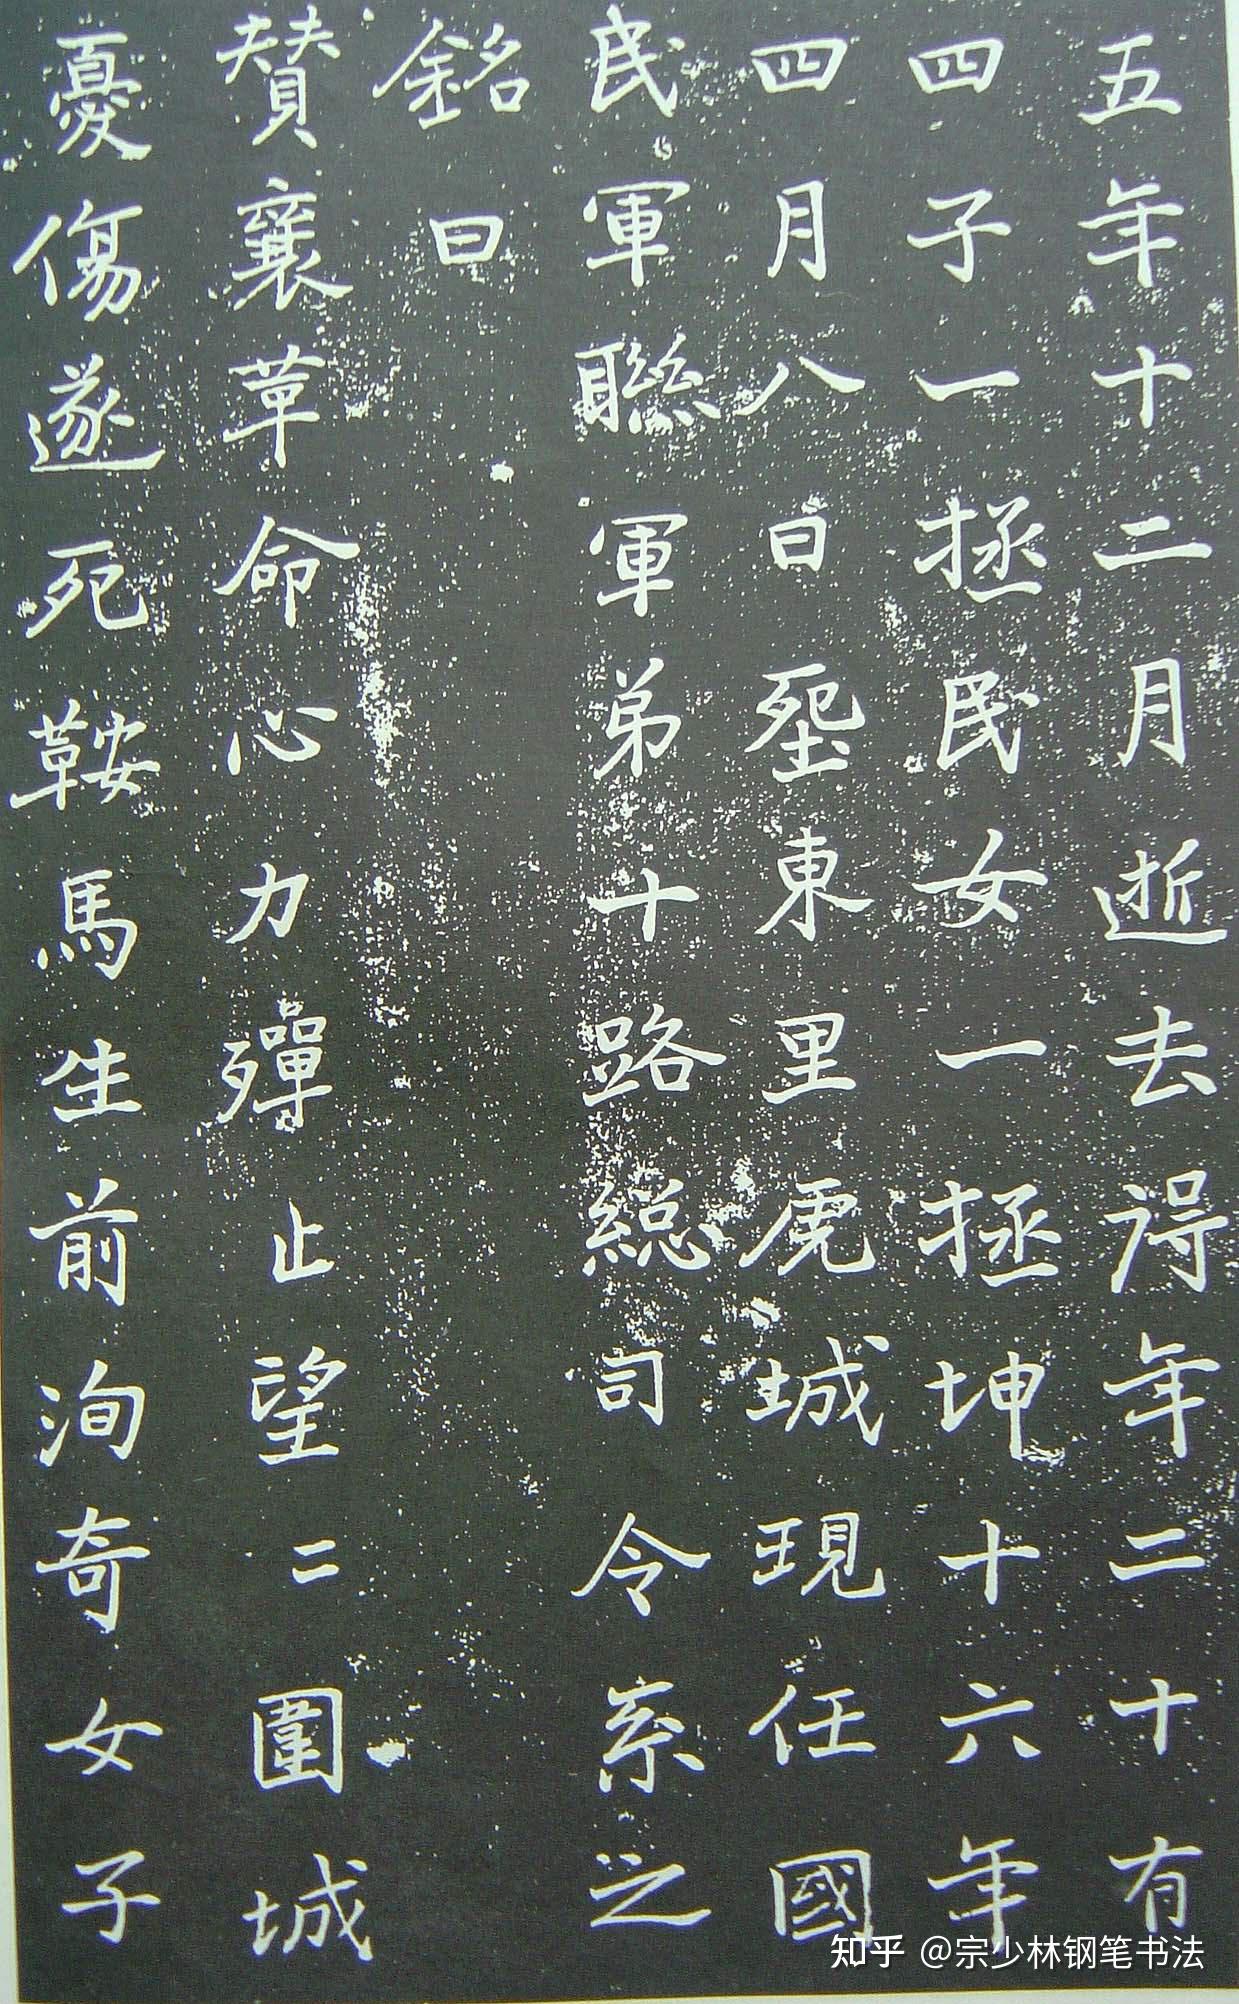 五年十二月逝去得年二十有
四子一拯民女一拯坤十六年
四月八日堊東里虎城現任國
民軍聯軍弟十路総司令系之
銘曰
賛襄革命心力殫止望二圍城
憂傷遂死鞍馬生前洵奇女子
知乎 @宗少林钢笔书法